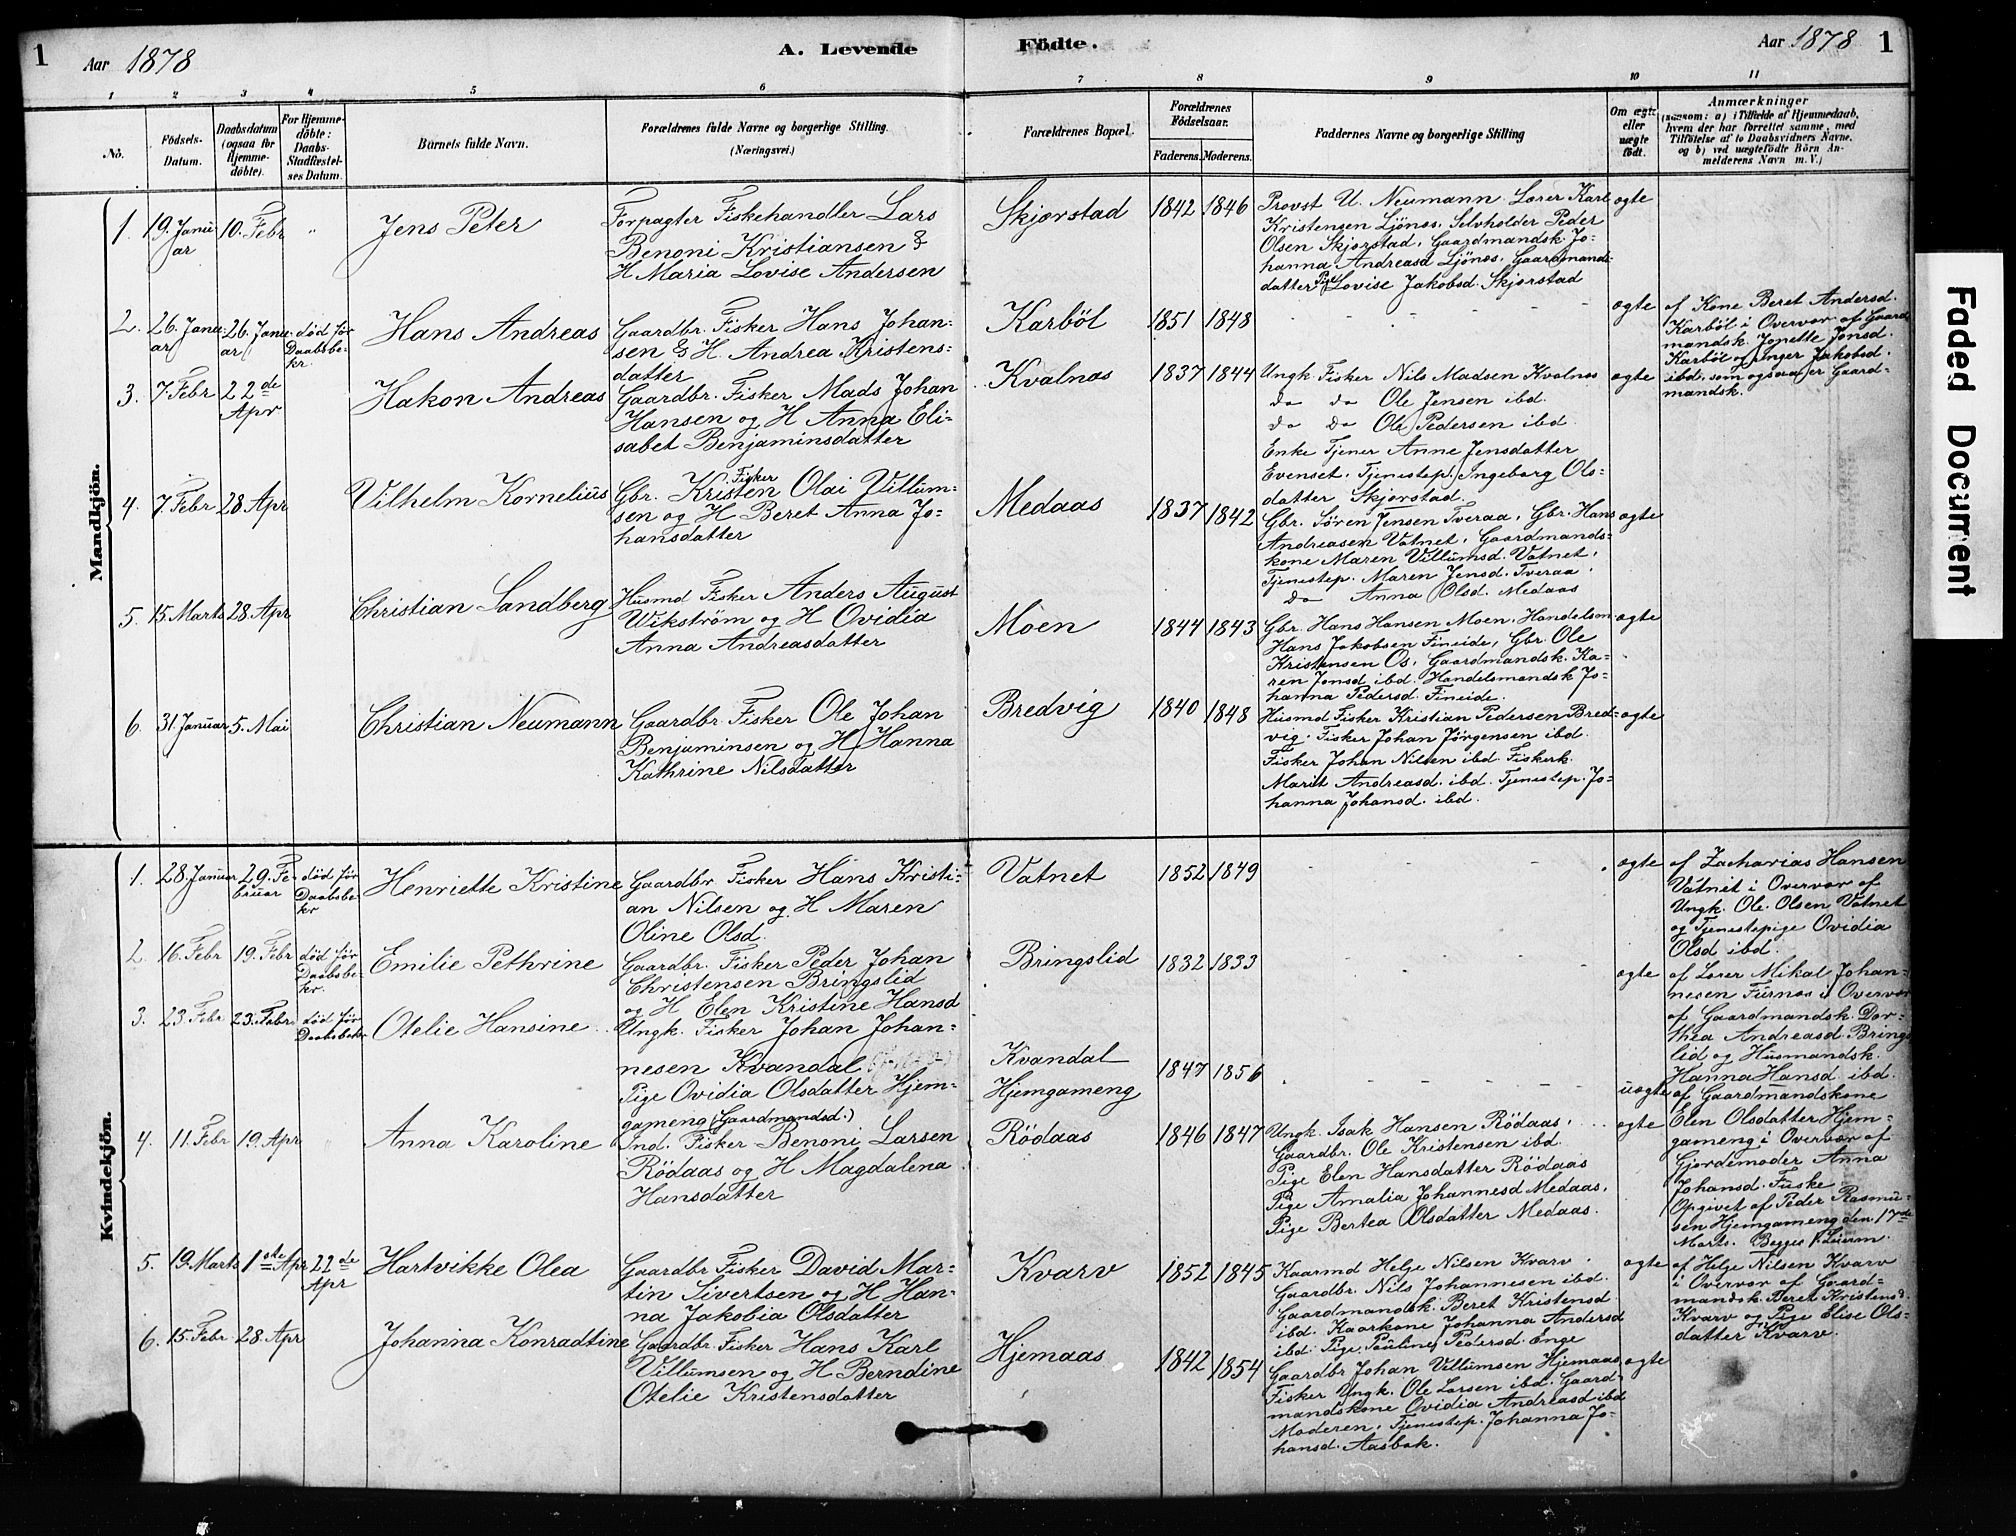 1
Aar 1878
A. Levende Födte.
Aar 1878
1
1 2 3 4 5 6 7 8 9 10 11
No.
Födsels-Datum.
Daabsdatum (ogsaa for Hjemme-döbte).
For Hjemme-döbte: Daabs-Stadfæstel-ses Datum.
Barnets fulde Navn.
Forældrenes fulde Navne og borgerlige Stilling.
(Næringsvei.)
Forældrenes Bopæl.
Forældrenes Födselsaar.
Faderens. Moderens.
Faddernes Navne og borgerlige Stilling
Om ægte eller uægte födt.
Anmærkninger
(saasom: a) i Tilfælde af Hjemmedaab, hvem der har forrettet samme, med Tilföielse af to Daabsvidners Navne, og b) ved uægtefödte Börn Anmelderens Navn m. V.)
Mandkjön.
1. 19. Januar 10. Febr "
Jens Peter
Forpagter Fiskehandler Lars
Benoni Kristiansen &
H. Maria Lovise Andersen
Skjærstad
1842 1846
Provst U. Neumann. Lærer Karl
Kristensen Ljönes. Selvholder Peder
Olsen Skjærstad, Gaardmandsk. Jo-
hanna Andreasd Ljönes, Gaardmands-
datter Pige Lovise Jakobsd. Skjærstad
ægte
2. 26. Januar 26. Januar död før Daabsbekr.
Hans Andreas
Gaardbr. Fisker Hans Johan-
sen & H. Andrea Kristens-
datter
Karböl
1851 1848
ægte
af Kone Beret Andersd.
Karböl i Overvær af Gaard
mandsk. Jonette Jonsd.
Karböl og Inger Jakobsd.
ibd. som ogsaa er Gaard-
mandsk.
3. 7. Febr 22de Apr
Hakon Andreas
Gaardbr. Fisker Mads Johan
Hansen og H Anna Eli-
sabet Benjaminsdatter
Kvalnes
1837 1844
Ungk. Fisker Nils Madsen Kvalnes
do do Ole Jensen ibd.
do do Ole Pedersen ibd.
Enke Tjener Anne Jensdatter
Evenset. Tjenestep. Ingeborg Ols-
datter Skjærstad.
ægte
4. 7. Febr 28. Apr
Vilhelm Kornelius
Gbr. Fisker Kristen Olai Villum-
sen og H. Beret Anna Jo-
hansdatter
Medaas
1837 1842
Gbr. Søren Jensen Tveraa, Gbr. Hans
Andreasen Vatnet, Gaardmands-
kone Maren Villumsd. Vatnet,
Tjenestep. Maren Jensd. Tveraa,
do Anna Olsd. Medaas
ægte
5. 15. Marts 28. Apr
Christian Sandberg
Husmd Fisker Anders August
Wikström og H Ovidia
Anna Andreasdatter
Moen
1844 1843
Gbr. Hans Hansen Moen. Handelsm
Hans Jakobsen Fineide, Gbr. Ole
Kristensen Os, Gaardmandsk. Ka-
ren Jonsd ibd. Handelsmandsk Jo-
hanna Pedersd. Fineide.
ægte
6. 31. Januar 5. Mai
Christian Neumann
Gaardbr. Fisker Ole Johan
Benjaminsen og H. Hanna
Kathrine Nilsdatter
Bredvig
1840 1848
Husmd Fisker Kristian Pedersen Bred-
vig. Fisker Johan Jörgensen ibd.
Fisker Johan Nilsen ibd Fiskerk.
Marit Andreasd. ibd. Tjenestep. Jo-
hanna Johansd. ibd.
ægte
Kvindekjön.
1. 28. Januar 29. Februar död før Daabsbekr
Henriette Kristine
Gaardbr. Fisker Hans Kristi-
an Nilsen og H Maren
Oline Olsd.
Vatnet
1852 1849
ægte
af Zacharias Hansen
Vatnet i Overvær af
Ungk. Ole Olsen Vatnet
og Tjenestepige Ovidia
Olsd ibd.
2. 16. Febr 19. Febr död før Daabsbekr.
Emilie Pethrine
Gaardbr. Fisker Peder Johan
Christensen Bringslid
og H Elen Kristine Hansd
Bringslid
1832 1833
ægte
af Lærer Mikal Johan-
nesen Furnes i Overvær
af Gaardmandsk. Dor-
thea Andreasd. Brings
lid og Husmandsk.
Hanna Hansd. ibd.
3. 23. Febr 23. Febr död før Daabsbekr
Otelie Hansine
Ungk. Fisker Johan Johan-
nesen Kvandal
Pige Ovidia Olsdatter Hjem-
gameng (Gaardmandsd.)
Kvandal
Hjemgameng
1847 1856
uægte
af Gaardmandskone
Elen Olsdatter Hjem-
gameng i Overvær af
Gjordemoder Anna
Johansd. Fuske
Opgivet af Peder Rasmu-
sen Hjemgameng den 17de
Marts. Begges 1. Leierm.
4. 11. Febr 19. Apr "
Anna Karoline
Ind. Fisker Benoni Larsen
Rödaas og H Magdalena
Hansdatter
Rödaas
1846 1847
Ungk. Isak Hansen Rödaas,
Gaardbr. Ole Kristensen ibd.
Pige Elen Hansdatter Rödaas
Pige Amalia Johannesd Medaas,
Pige Bertea Olsdatter Medaas.
ægte
5. 19. Marts 1ste Apr 22de Apr
Hartvikke Olea
Gaardbr Fisker David Mar-
tin Sivertsen og H Han-
na Jakobia Olsdatter
Kvarv
1852 1845
Kaarmd Helge Nilsen Kvarv
Gaardbr. Nils Johannesen ibd.
Gaardmandsk. Beret Kristensd
ibd. Kaarkone Johanna Andersd
ibd. Pige Pauline Pedersd. Enge
ægte
af Helge Nilsen Kvarv
i Overvær af Gaard-
mandsk. Beret Kristensd
Kvarv og Pige Elise Ols-
datter Kvarv.
6. 15. Febr 28. Apr
Johanna Konradtine
Gaardbr. Fisker Hans Karl
Villumsen og H Berndine
Otelie Kristensdatter
Hjemaas
1842 1854
Gaardbr Johan Villumsen Hjemaas
Fisker Ungk. Ole Larsen ibd. Gaard-
mandskone Ovidia Andreasd ibd
Moderen, Tjenestep. Johanna Jo-
hansd. Aasbak.
ægte
Faded Document